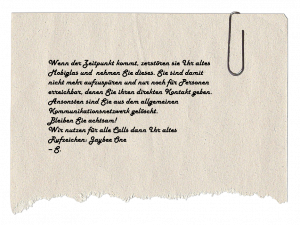 Wenn der Zeitpunkt kommt, zerstören sie Ihr altes
Mobiglas und nehmen Sie dieses. Sie sind damit
nicht mehr aufzuspüren und nur noch für Personen
erreichbar, denen Sie ihren direkten Kontakt geben.
Ansonsten sind Sie aus dem allgemeinen
Kommunikationsnetzwerk gelöscht.
Bleiben Sie achtsam!
Wir nutzen für alle Calls dann Ihr altes
Rufzeichen: Jaybee One
- S.